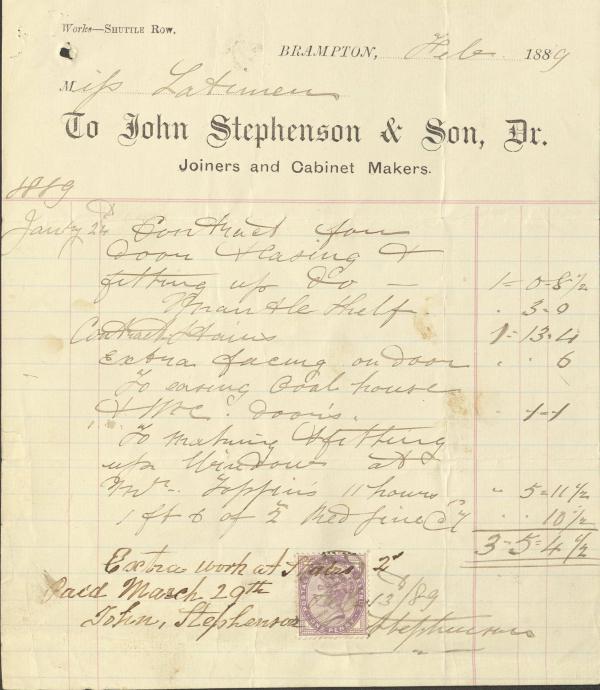 Works—SHUTTLE ROW.
BRAMPTON, Feb 1889
Miss Latimer
To John Stephenson & Son, Dr.
Joiners and Cabinet Makers.
1889
Jany 24 Contract for
door & casing &
fitting up Do — 1=0=8½
Mantle Shelf. . 3=0
Contract Stairs 1=13=4
Extra facing on door . . 6
To easing Coal house
& W.C. doors. . 1=1
To making & fitting
up Window at
Mr. Toppin's 11 hours " 5=11½
1 ft 6 of Red pine . . 10½
3=5=4½
Extra work at Stairs 2s
Paid March 29th 13/89
John, Stephenson Stephenson
POSTAGE
ONE PENNY